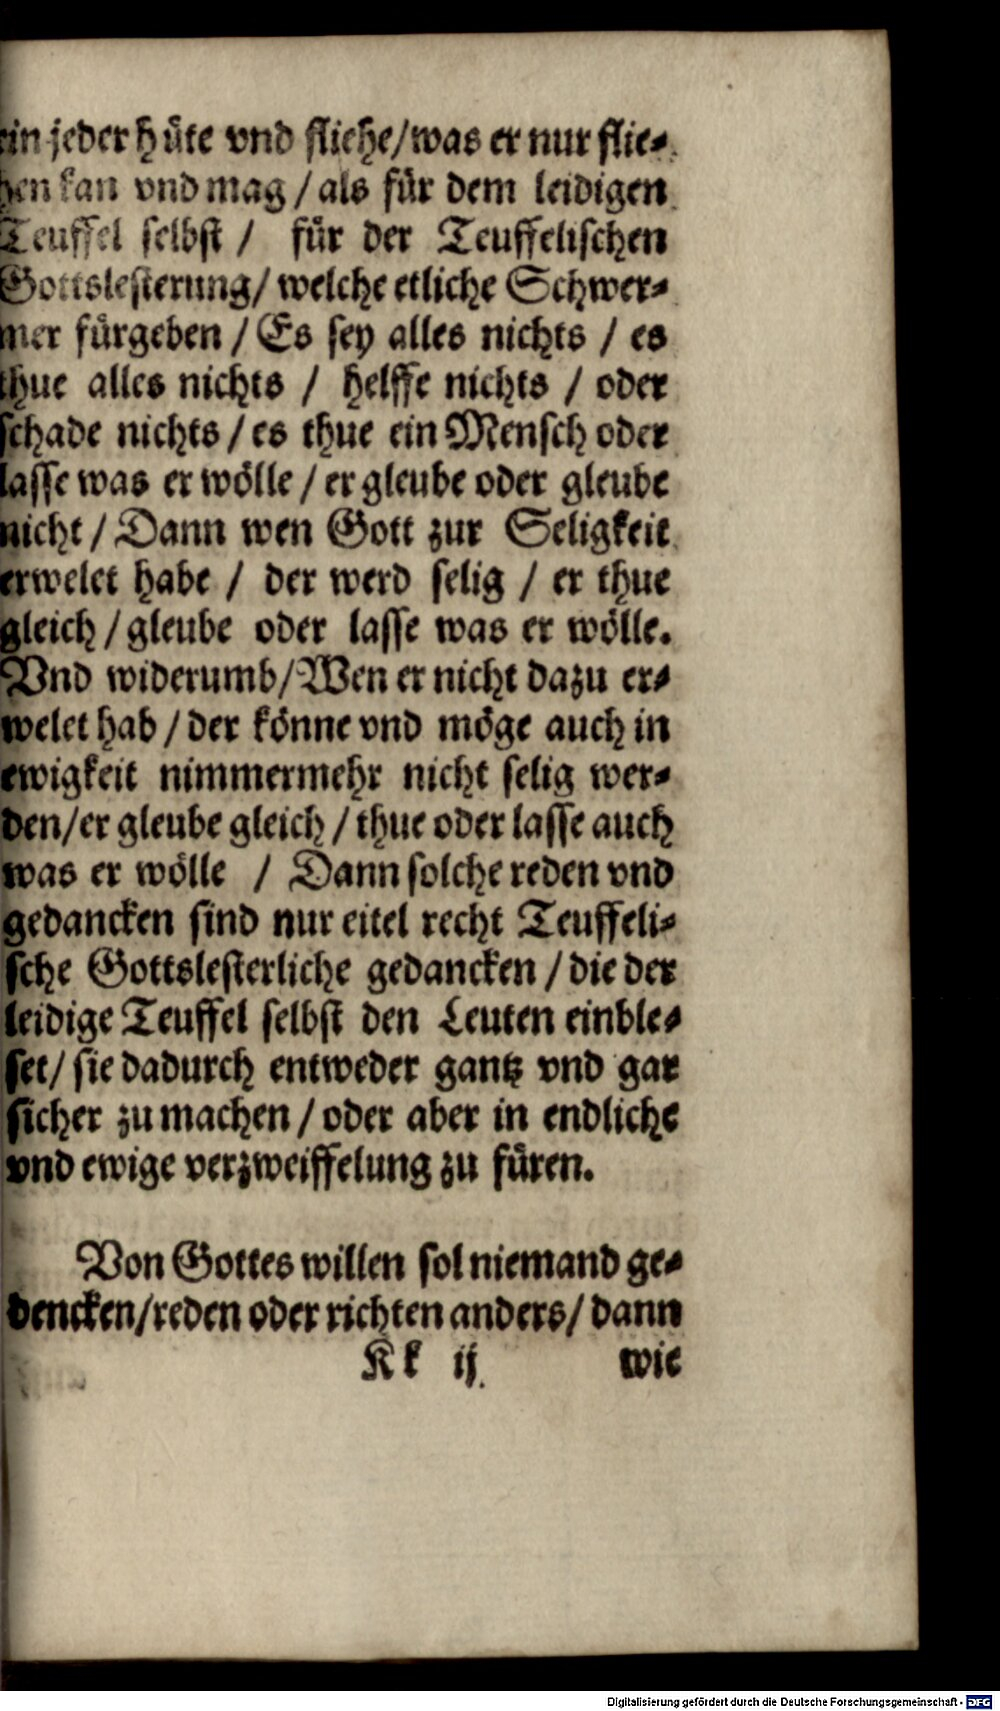 ein jeder hüte vnd fliehe/was er nur flie-
hen kan vnd mag / als für dem leidigen
Teuffel selbst / für der Teuffelischen
Gottslesterung/ welche etliche Schwer-
mer fürgeben / Es sey alles nichts / es
thue alles nichts / helffe nichts / oder
schade nichts / es thue ein Mensch oder
lasse was er wölle / er gleube oder gleube
nicht / Dann wen Gott zur Seligkeit
erwelet habe / der werd selig / er thue
gleich / gleube oder lasse was er wölle.
Vnd widerumb/Wen er nicht dazu er-
welet hab / der könne vnd möge auch in
ewigkeit nimmermehr nicht selig wer-
den/er gleube gleich / thue oder lasse auch
was er wölle / Dann solche reden vnd
gedancken sind nur eitel recht Teuffeli-
sche Gottslesterliche gedancken / die der
leidige Teuffel selbst den Leuten einble-
set/ sie dadurch entweder gantz vnd gar
sicher zu machen / oder aber in endliche
vnd ewige verzweiffelung zu füren.
Von Gottes willen sol niemand ge-
dencken/reden oder richten anders/ dann
Kk ij wie
Digitalisierung gefördert durch die Deutsche Forschungsgemeinschaft - DFG